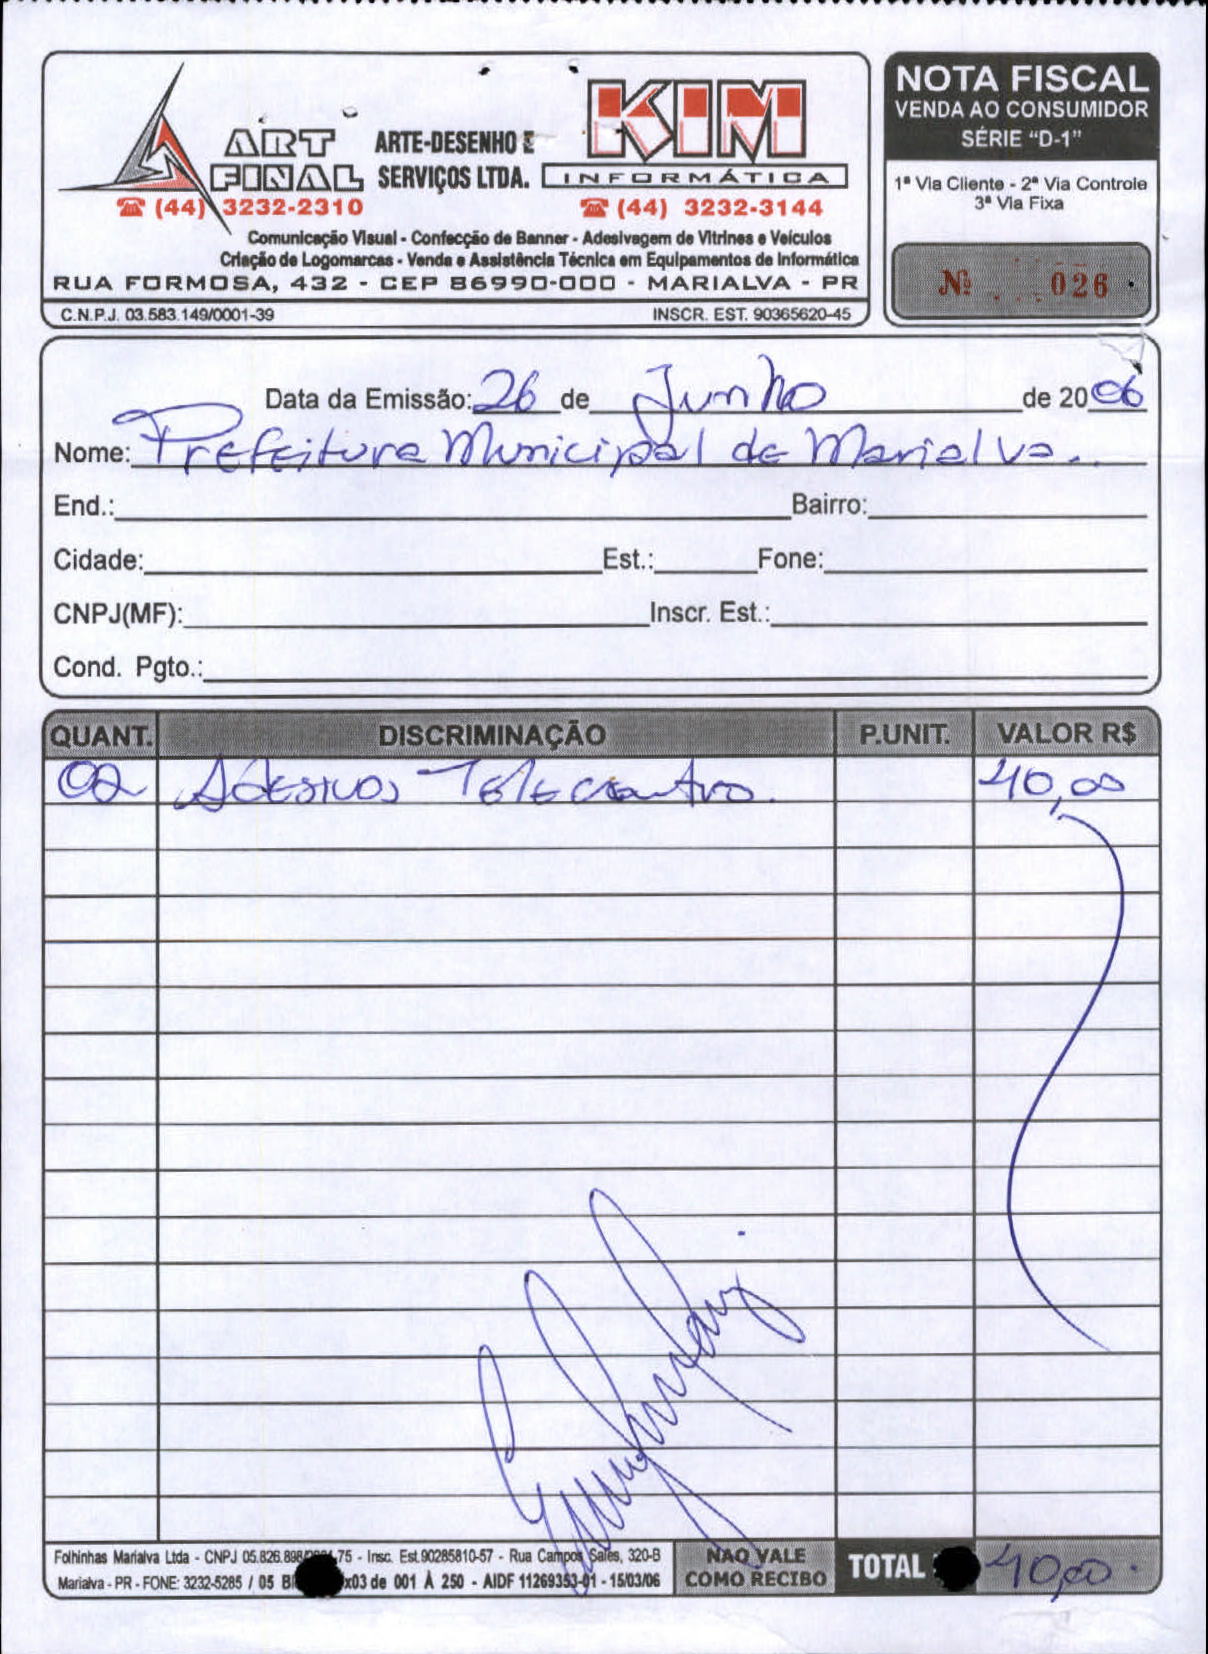 ART FINAL
ARTE-DESENHO E
SERVIÇOS LTDA.
KIM
INFORMÁTICA
(44) 3232-2310
(44) 3232-3144
Comunicação Visual - Confecção de Banner - Adesivagem de Vitrines e Veículos
Criação de Logomarcas - Venda e Assistência Técnica em Equipamentos de Informática
RUA FORMOSA, 432 - CEP 86990-000 - MARIALVA - PR
C.N.P.J. 03.583.149/0001-39 INSCR. EST. 90365620-45
NOTA FISCAL
VENDA AO CONSUMIDOR
SÉRIE "D-1"
1ª Via Cliente - 2ª Via Controle
3ª Via Fixa
Nº 026
Data da Emissão: 26 de Junho de 2006
Nome: Prefeitura Municipal de Marialva.
End.: Bairro:
Cidade: Est.: Fone:
CNPJ(MF): Inscr. Est.:
Cond. Pgto.:
QUANT. DISCRIMINAÇÃO P.UNIT. VALOR R$
02 Adesivos Telecentro. 40,00
Folhinhas Marialva Ltda - CNPJ 05.826.898 75 - Insc. Est.90285810-57 - Rua Campos Sales, 320-B
Marialva - PR - FONE: 3232-5285 / 05 x03 de 001 À 250 - AIDF 11269353-01 - 15/03/06
NAO VALE
COMO RECIBO
TOTAL 40,00